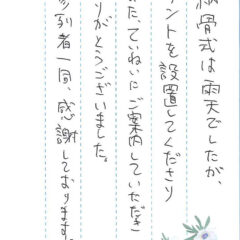 納骨式は雨天でしたが、
テントを設置してくださり
また、ていねいにご案内していただき
ありがとうございました。
参列者一同、感謝しております。